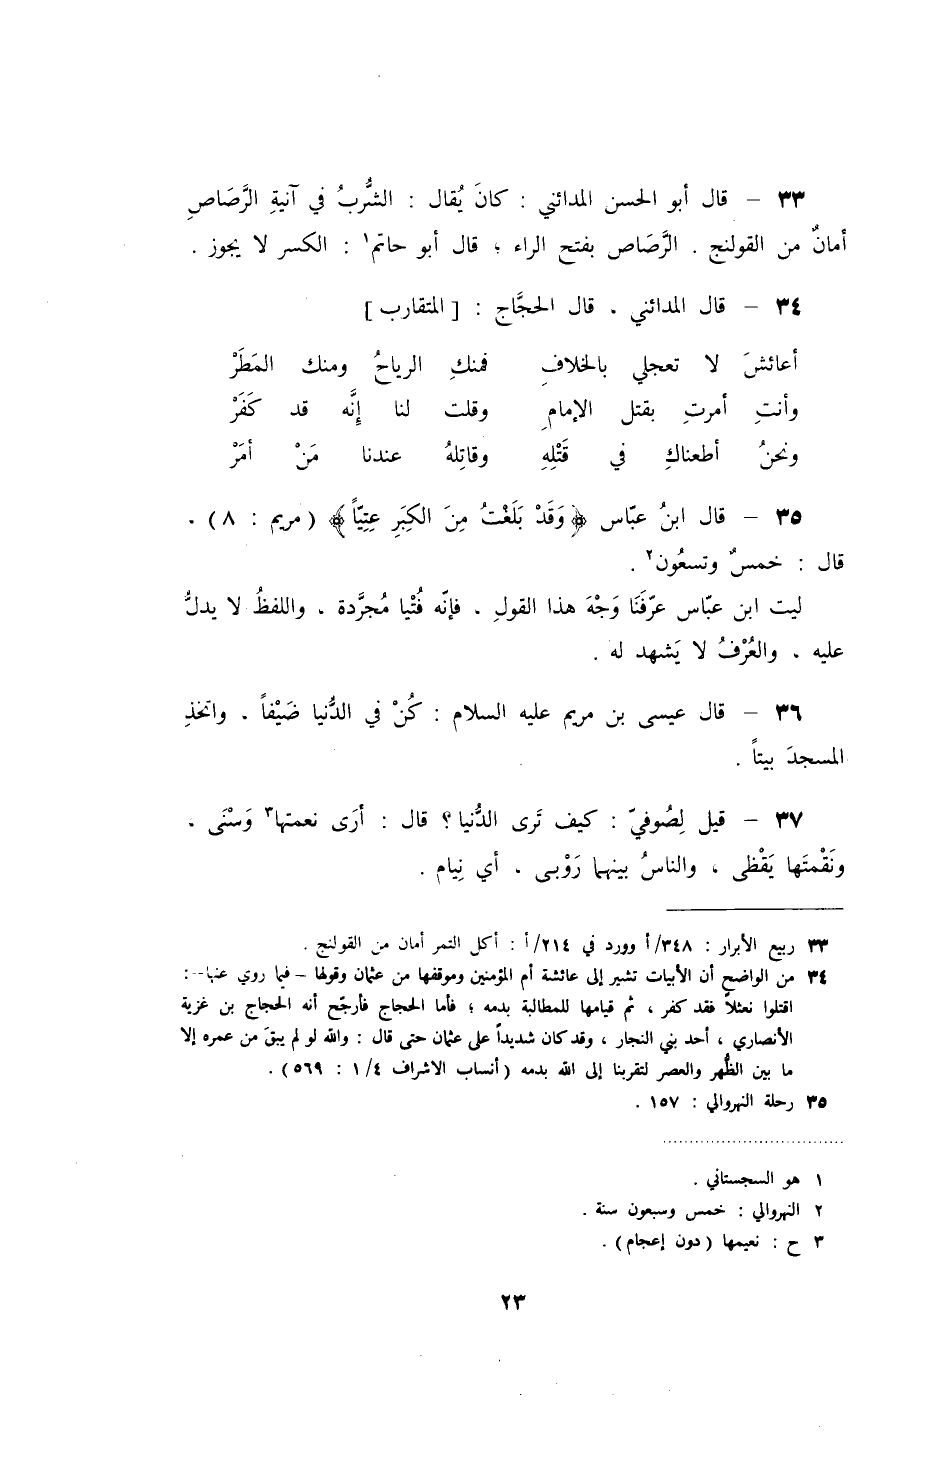 ٣٣ – قال أبو الحسن المدائني : كانَ يُقال : الشُّربُ في آنيةِ الرَّصَاصِ
أمانٌ من القولنج . الرَّصاص بفتح الراء ؛ قال أبو حاتم١ : الكسر لا يجوز .
٣٤ – قال المدائني . قال الحجَّاج : [ المتقارب ]
أعائشَ لا تعجلي بالخلافِ فمنكِ الرياحُ ومنك المَطَرْ
وأنتِ أمرتِ بقتل الإمامِ وقلت لنا إنَّه قد كَفَرْ
ونحنُ أطعناكِ في قَتْلِهِ وقاتِلهُ عندنا مَنْ أمَرْ
٣٥ – قال ابنُ عبّاس ﴿ وَقَدْ بَلَغْتُ مِنَ الكِبَرِ عِتِيّاً ﴾ ( مريم : ٨ ) .
قال : خمسٌ وتسعُون٢ .
ليت ابن عبّاس عرّفَنَا وَجْهَ هذا القولِ . فإنّه فُتْيا مُجرَّدة . واللفظُ لا يدلُّ
عليه . والعُرْفُ لا يَشهد له .
٣٦ – قال عيسى بن مريم عليه السلام : كُنْ في الدُّنيا ضَيْفاً . واتخذِ
المسجدَ بيتاً .
٣٧ – قيل لِصُوفيّ : كيف تَرى الدُّنيا ؟ قال : أرَى نعمتها٣ وَسْنَى .
ونَقْمتَها يَقْظى ، والناسُ بينهما رَوْبى . أي نِيام .
٣٣ ربيع الأبرار : ٣٤٨/أ وورد في ٢١٤/أ : أكل التمر أمان من القولنج .
٣٤ من الواضح أن الأبيات تشير إلى عائشة أم المؤمنين وموقفها من عثمان وقولها – فيما روي عنها – :
اقتلوا نعثلاً فقد كفر ، ثم قيامها للمطالبة بدمه ؛ فأما الحجاج فأرجّح أنه الحجاج بن غزية
الأنصاري ، أحد بني النجار ، وقد كان شديداً على عثمان حتى قال : والله لو لم يبقَ من عمره إلا
ما بين الظُّهر والعصر لتقربنا إلى الله بدمه ( أنساب الاشراف ٤/١ : ٥٦٩ ) .
٣٥ رحلة النهروالي : ١٥٧ .
١ هو السجستاني .
٢ النهروالي : خمس وسبعون سنة .
٣ ح : نعيمها ( دون إعجام ) .
٢٣